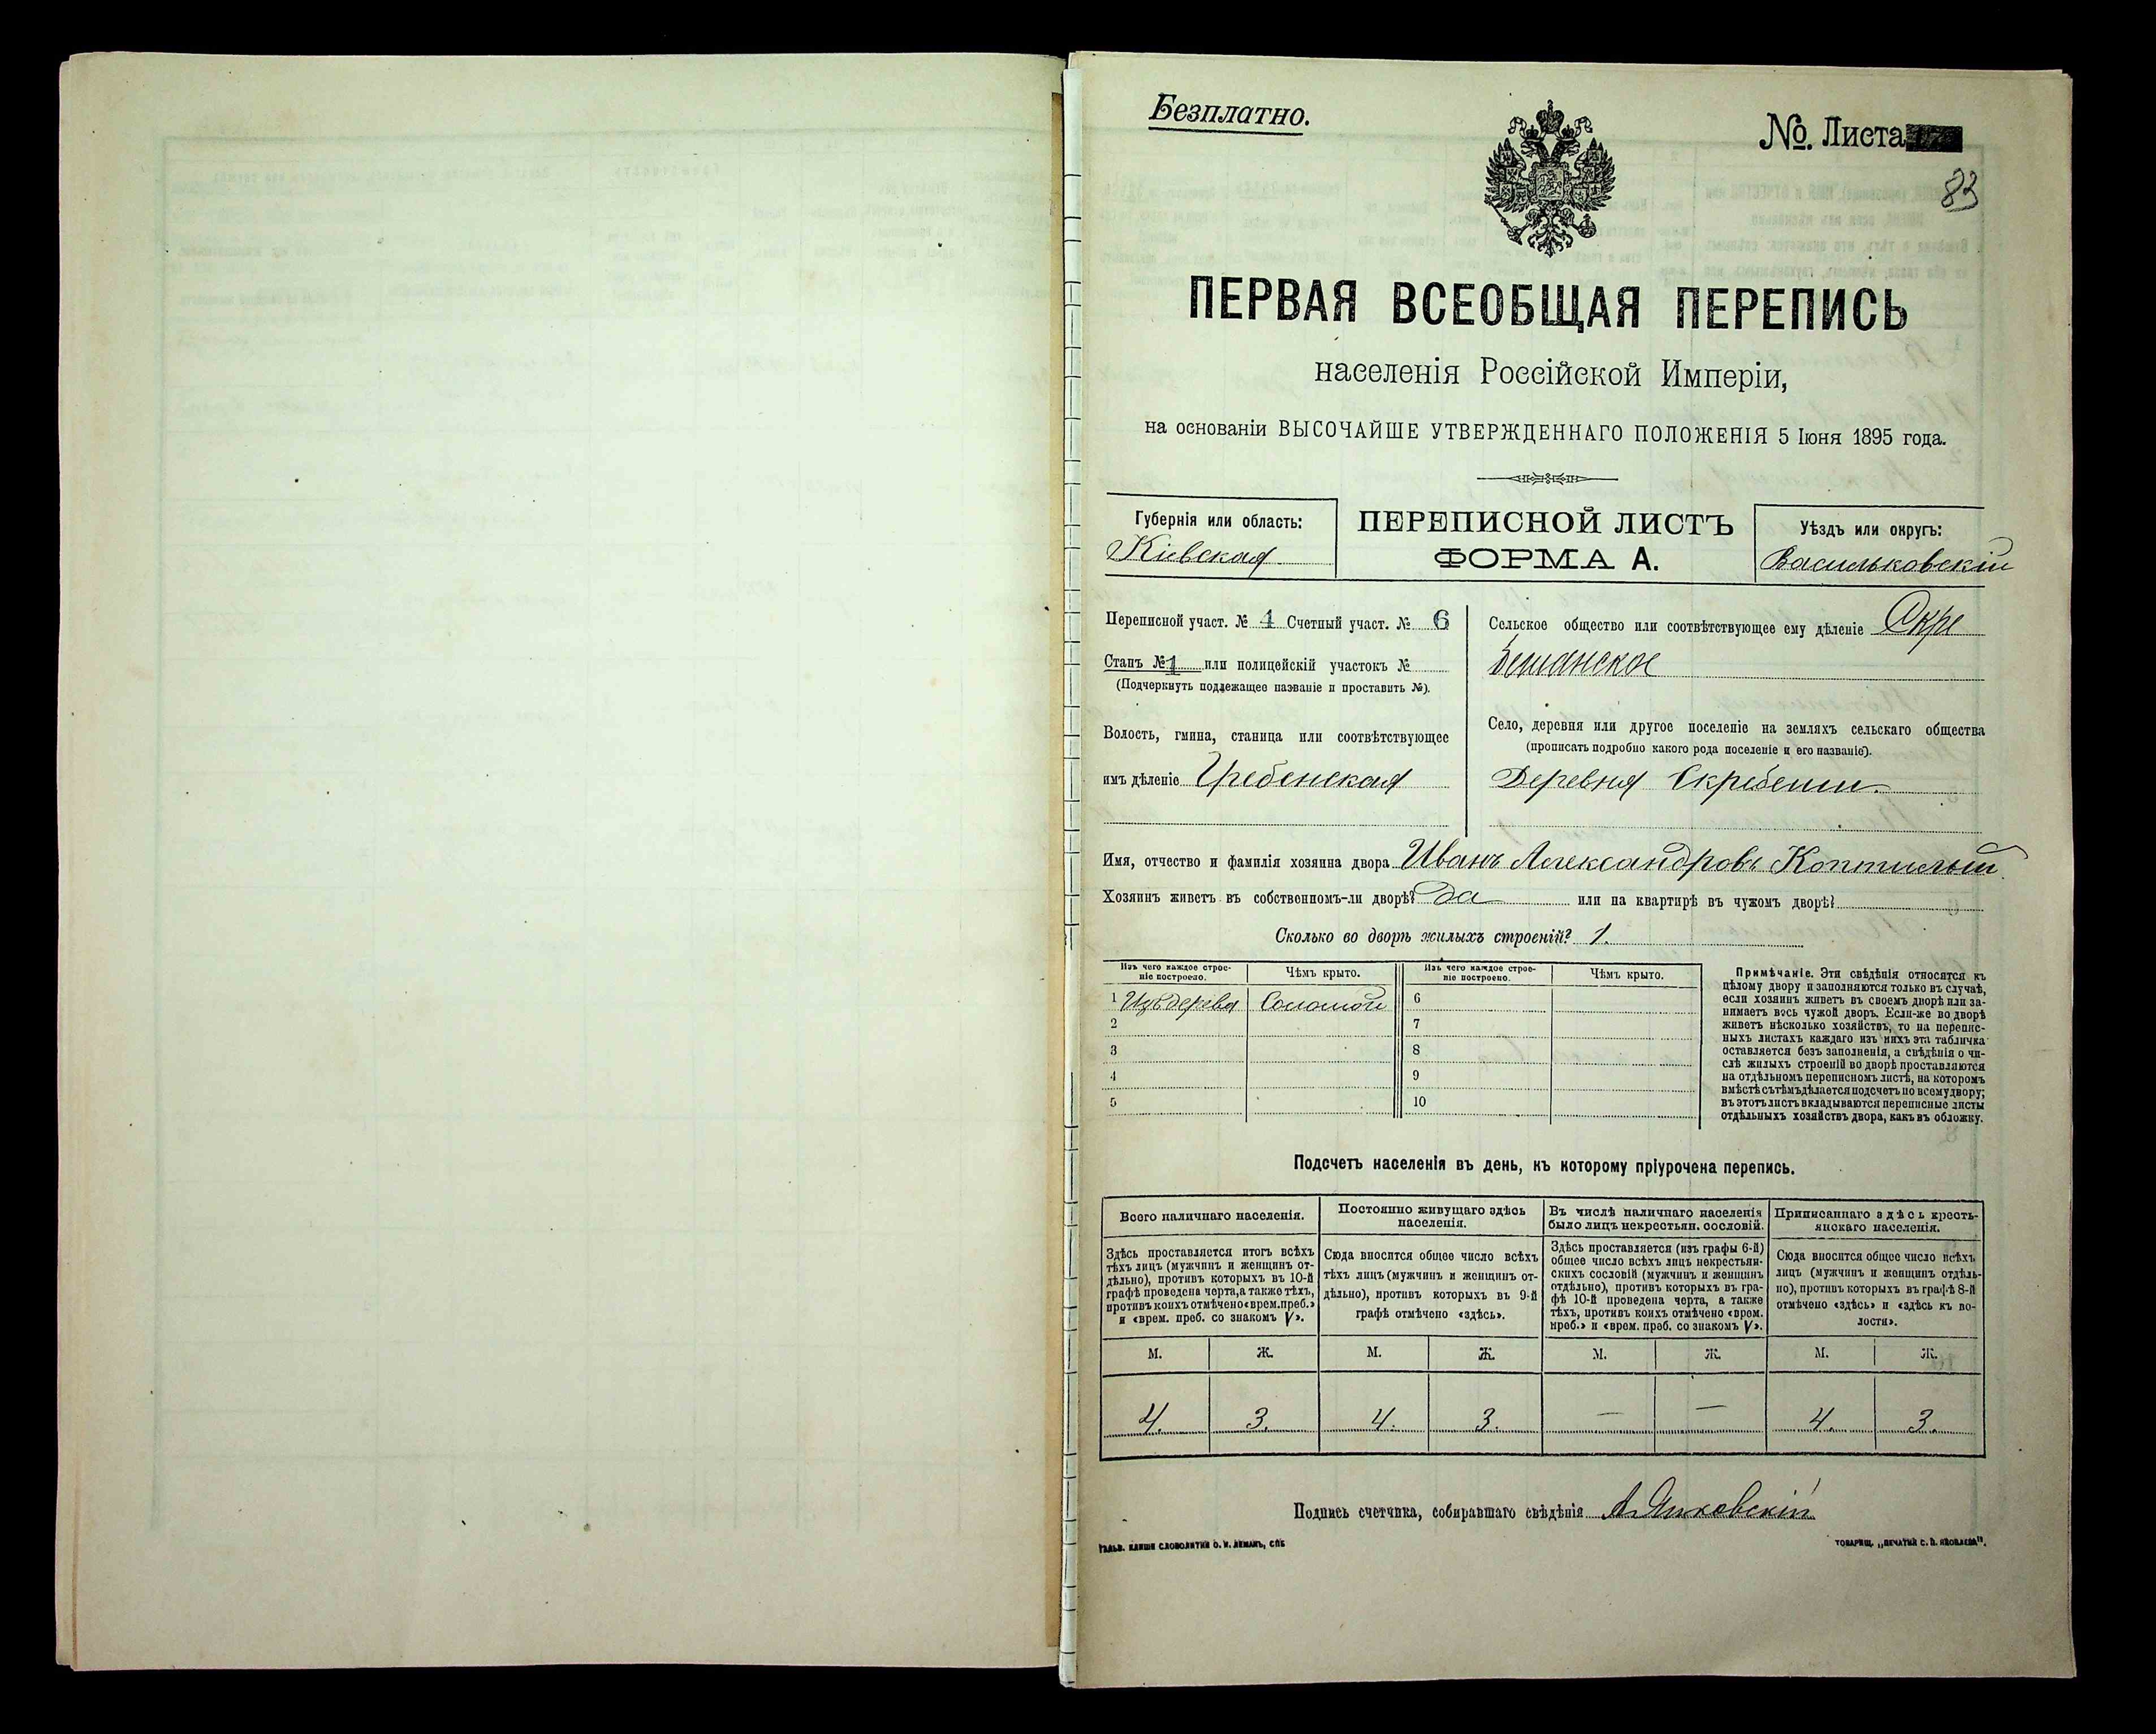 Безплатно.
№. Листа
83
ПЕРВАЯ ВСЕОБЩАЯ ПЕРЕПИСЬ
населенія Россійской Имперіи,
на основаніи ВЫСОЧАЙШЕ УТВЕРЖДЕННАГО ПОЛОЖЕНІЯ 5 Іюня 1895 года.
Губернія или область:
Кіевская
ПЕРЕПИСНОЙ ЛИСТЪ
ФОРМА А.
Уѣздъ или округъ:
Васильковскій
Переписной участ. № 4 Счетный участ. № 6
Станъ №1 или полицейскій участокъ №
(Подчеркнуть подлежащее названіе и проставить №).
Волость, гмина, станица или соотвѣтствующее
имъ дѣленіе Гребенская
Сельское общество или соотвѣтствующее ему дѣленіе Скре
бешанское
Село, деревня или другое поселеніе на земляхъ сельскаго общества
(прописать подробно какого рода поселеніе и его названіе).
Деревня Скребеши.
Имя, отчество и фамилія хозяина двора Иванъ Александровъ
Хозяинъ живетъ въ собственномъ-ли дворѣ? да или на квартирѣ въ чужомъ дворѣ?
Сколько во дворѣ жилыхъ строеній? 1.
Изъ чего каждое строе-
ніе построено.
Чѣмъ крыто.
Изъ чего каждое строе-
ніе построено.
Чѣмъ крыто.
1 Изъ дерева Соломой
2
3
4
5
6
7
8
9
10
Примѣчаніе. Эти свѣдѣнія относятся къ
цѣлому двору и заполняются только въ случаѣ,
если хозяинъ живетъ въ своемъ дворѣ или за-
нимаетъ весь чужой дворъ. Если-же во дворѣ
живетъ нѣсколько хозяйствъ, то на перепис-
ныхъ листахъ каждаго изъ нихъ эта табличка
оставляется безъ заполненія, а свѣдѣнія о чи-
слѣ жилыхъ строеній во дворѣ проставляются
на отдѣльномъ переписномъ листѣ, на которомъ
вмѣстѣ съ тѣмъ дѣлается подсчетъ по всему двору;
въ этотъ листъ вкладываются переписные листы
отдѣльныхъ хозяйствъ двора, какъ въ обложку.
Подсчетъ населенія въ день, къ которому пріурочена перепись.
Всего наличнаго населенія.
Здѣсь проставляется итогъ всѣхъ
тѣхъ лицъ (мужчинъ и женщинъ от-
дѣльно), противъ которыхъ въ 10-й
графѣ проведена черта, а также тѣхъ,
противъ коихъ отмѣчено «врем. преб.»
и «врем. преб. со знакомъ V».
Постоянно живущаго здѣсь
населенія.
Сюда вносится общее число всѣхъ
тѣхъ лицъ (мужчинъ и женщинъ от-
дѣльно), противъ которыхъ въ 9-й
графѣ отмѣчено «здѣсь».
Въ числѣ наличнаго населенія
было лицъ некрестьян. сословій.
Здѣсь проставляется (изъ графы 6-й)
общее число всѣхъ лицъ некрестьян-
скихъ сословій (мужчинъ и женщинъ
отдѣльно), противъ которыхъ въ гра-
фѣ 10-й проведена черта, а также
тѣхъ, противъ коихъ отмѣчено «врем.
преб.» и «врем. преб. со знакомъ V».
Приписаннаго здѣсь кресть-
янскаго населенія.
Сюда вносится общее число всѣхъ
лицъ (мужчинъ и женщинъ отдѣль-
но), противъ которыхъ въ графѣ 8-й
отмѣчено «здѣсь» и «здѣсь къ во-
лости».
М. Ж. М. Ж. М. Ж. М. Ж.
4. 3. 4. 3. — — 4. 3.
Подпись счетчика, собиравшаго свѣдѣнія А. Янковскій
Гальв. клише словолитни О. И. Леманъ, СПБ
Товарищ. „Печатня С. П. Яковлева".